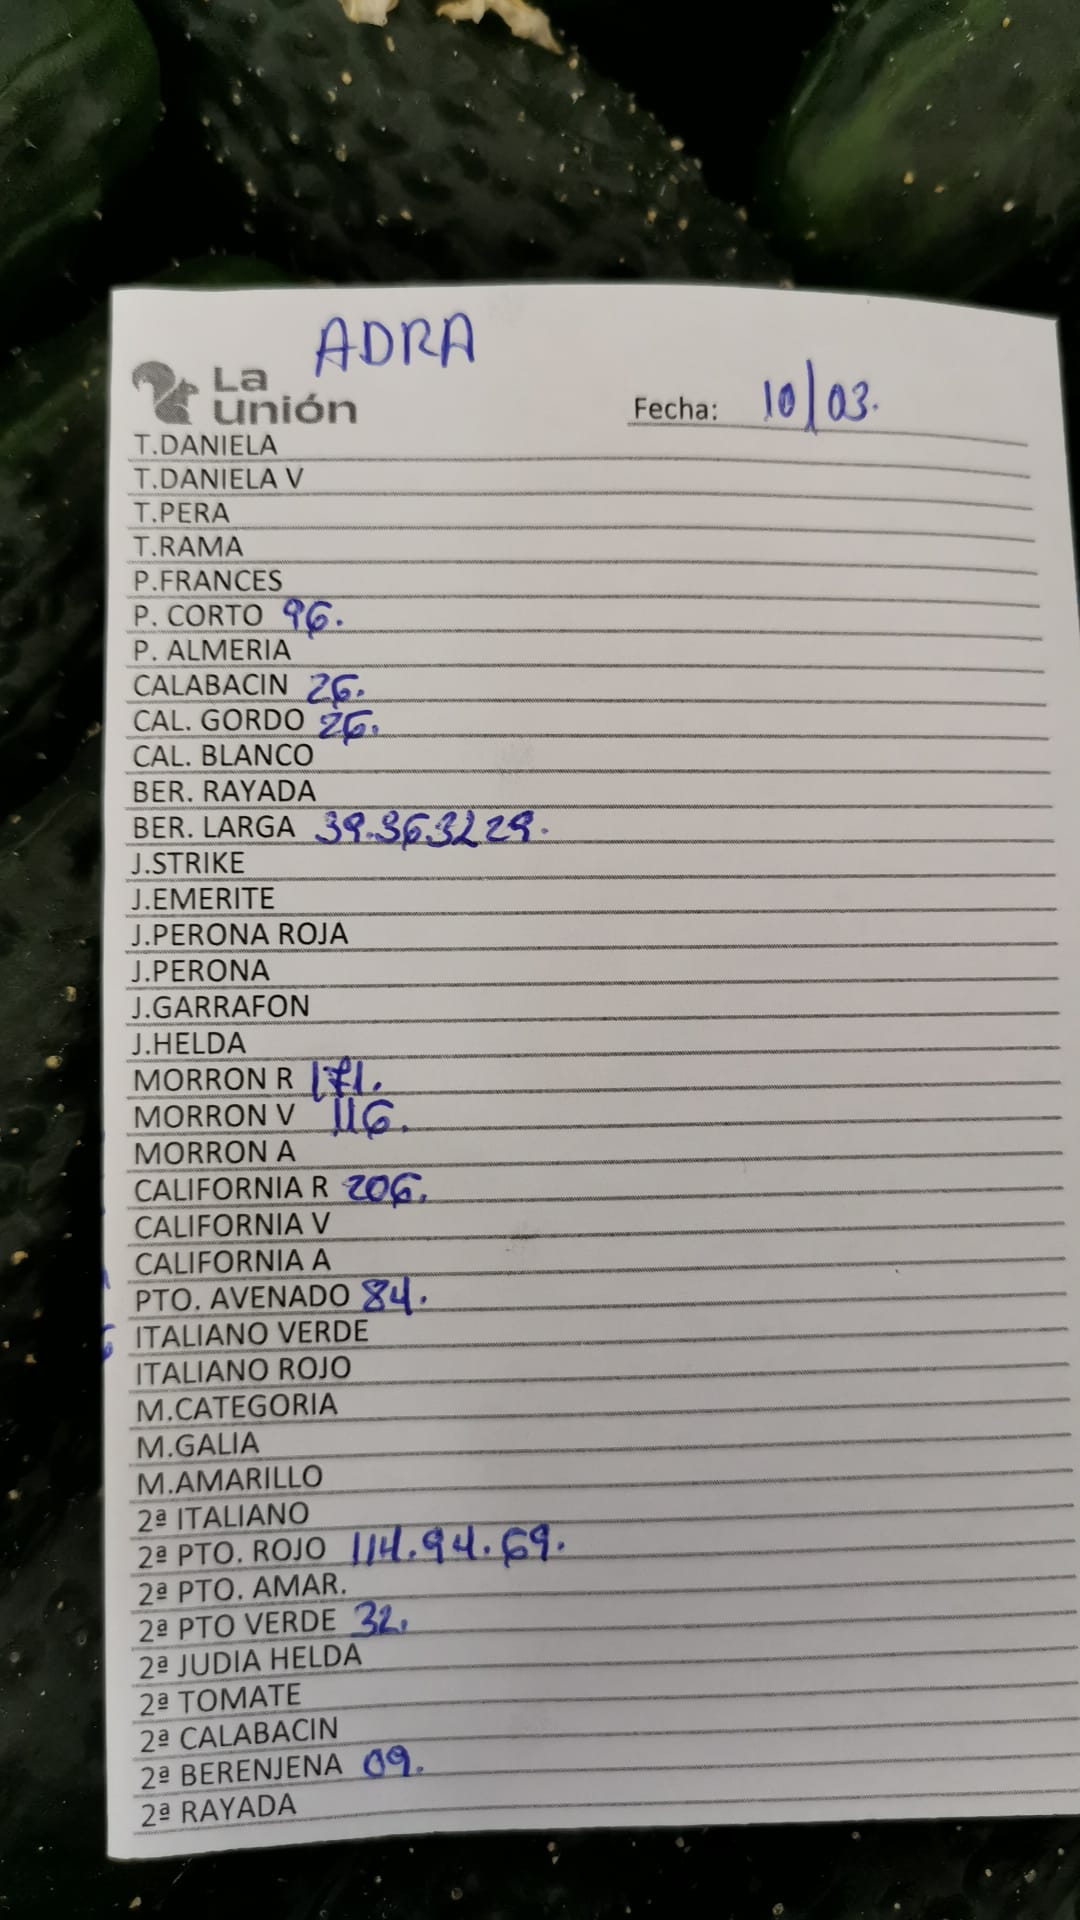 ADRA
La Unión
Fecha: 10/03.
T.DANIELA
T.DANIELA V
T.PERA
T.RAMA
P.FRANCES
P. CORTO 96.
P. ALMERIA
CALABACIN 26.
CAL. GORDO 26.
CAL. BLANCO
BER. RAYADA
BER. LARGA 39.36 32 29.
J.STRIKE
J.EMERITE
J.PERONA ROJA
J.PERONA
J.GARRAFON
J.HELDA
MORRON R 171.
MORRON V 116.
MORRON A
CALIFORNIA R 206.
CALIFORNIA V
CALIFORNIA A
PTO. AVENADO 84.
ITALIANO VERDE
ITALIANO ROJO
M.CATEGORIA
M.GALIA
M.AMARILLO
2ª ITALIANO
2ª PTO. ROJO 114.94.69.
2ª PTO. AMAR.
2ª PTO VERDE 32.
2ª JUDIA HELDA
2ª TOMATE
2ª CALABACIN
2ª BERENJENA 09.
2ª RAYADA